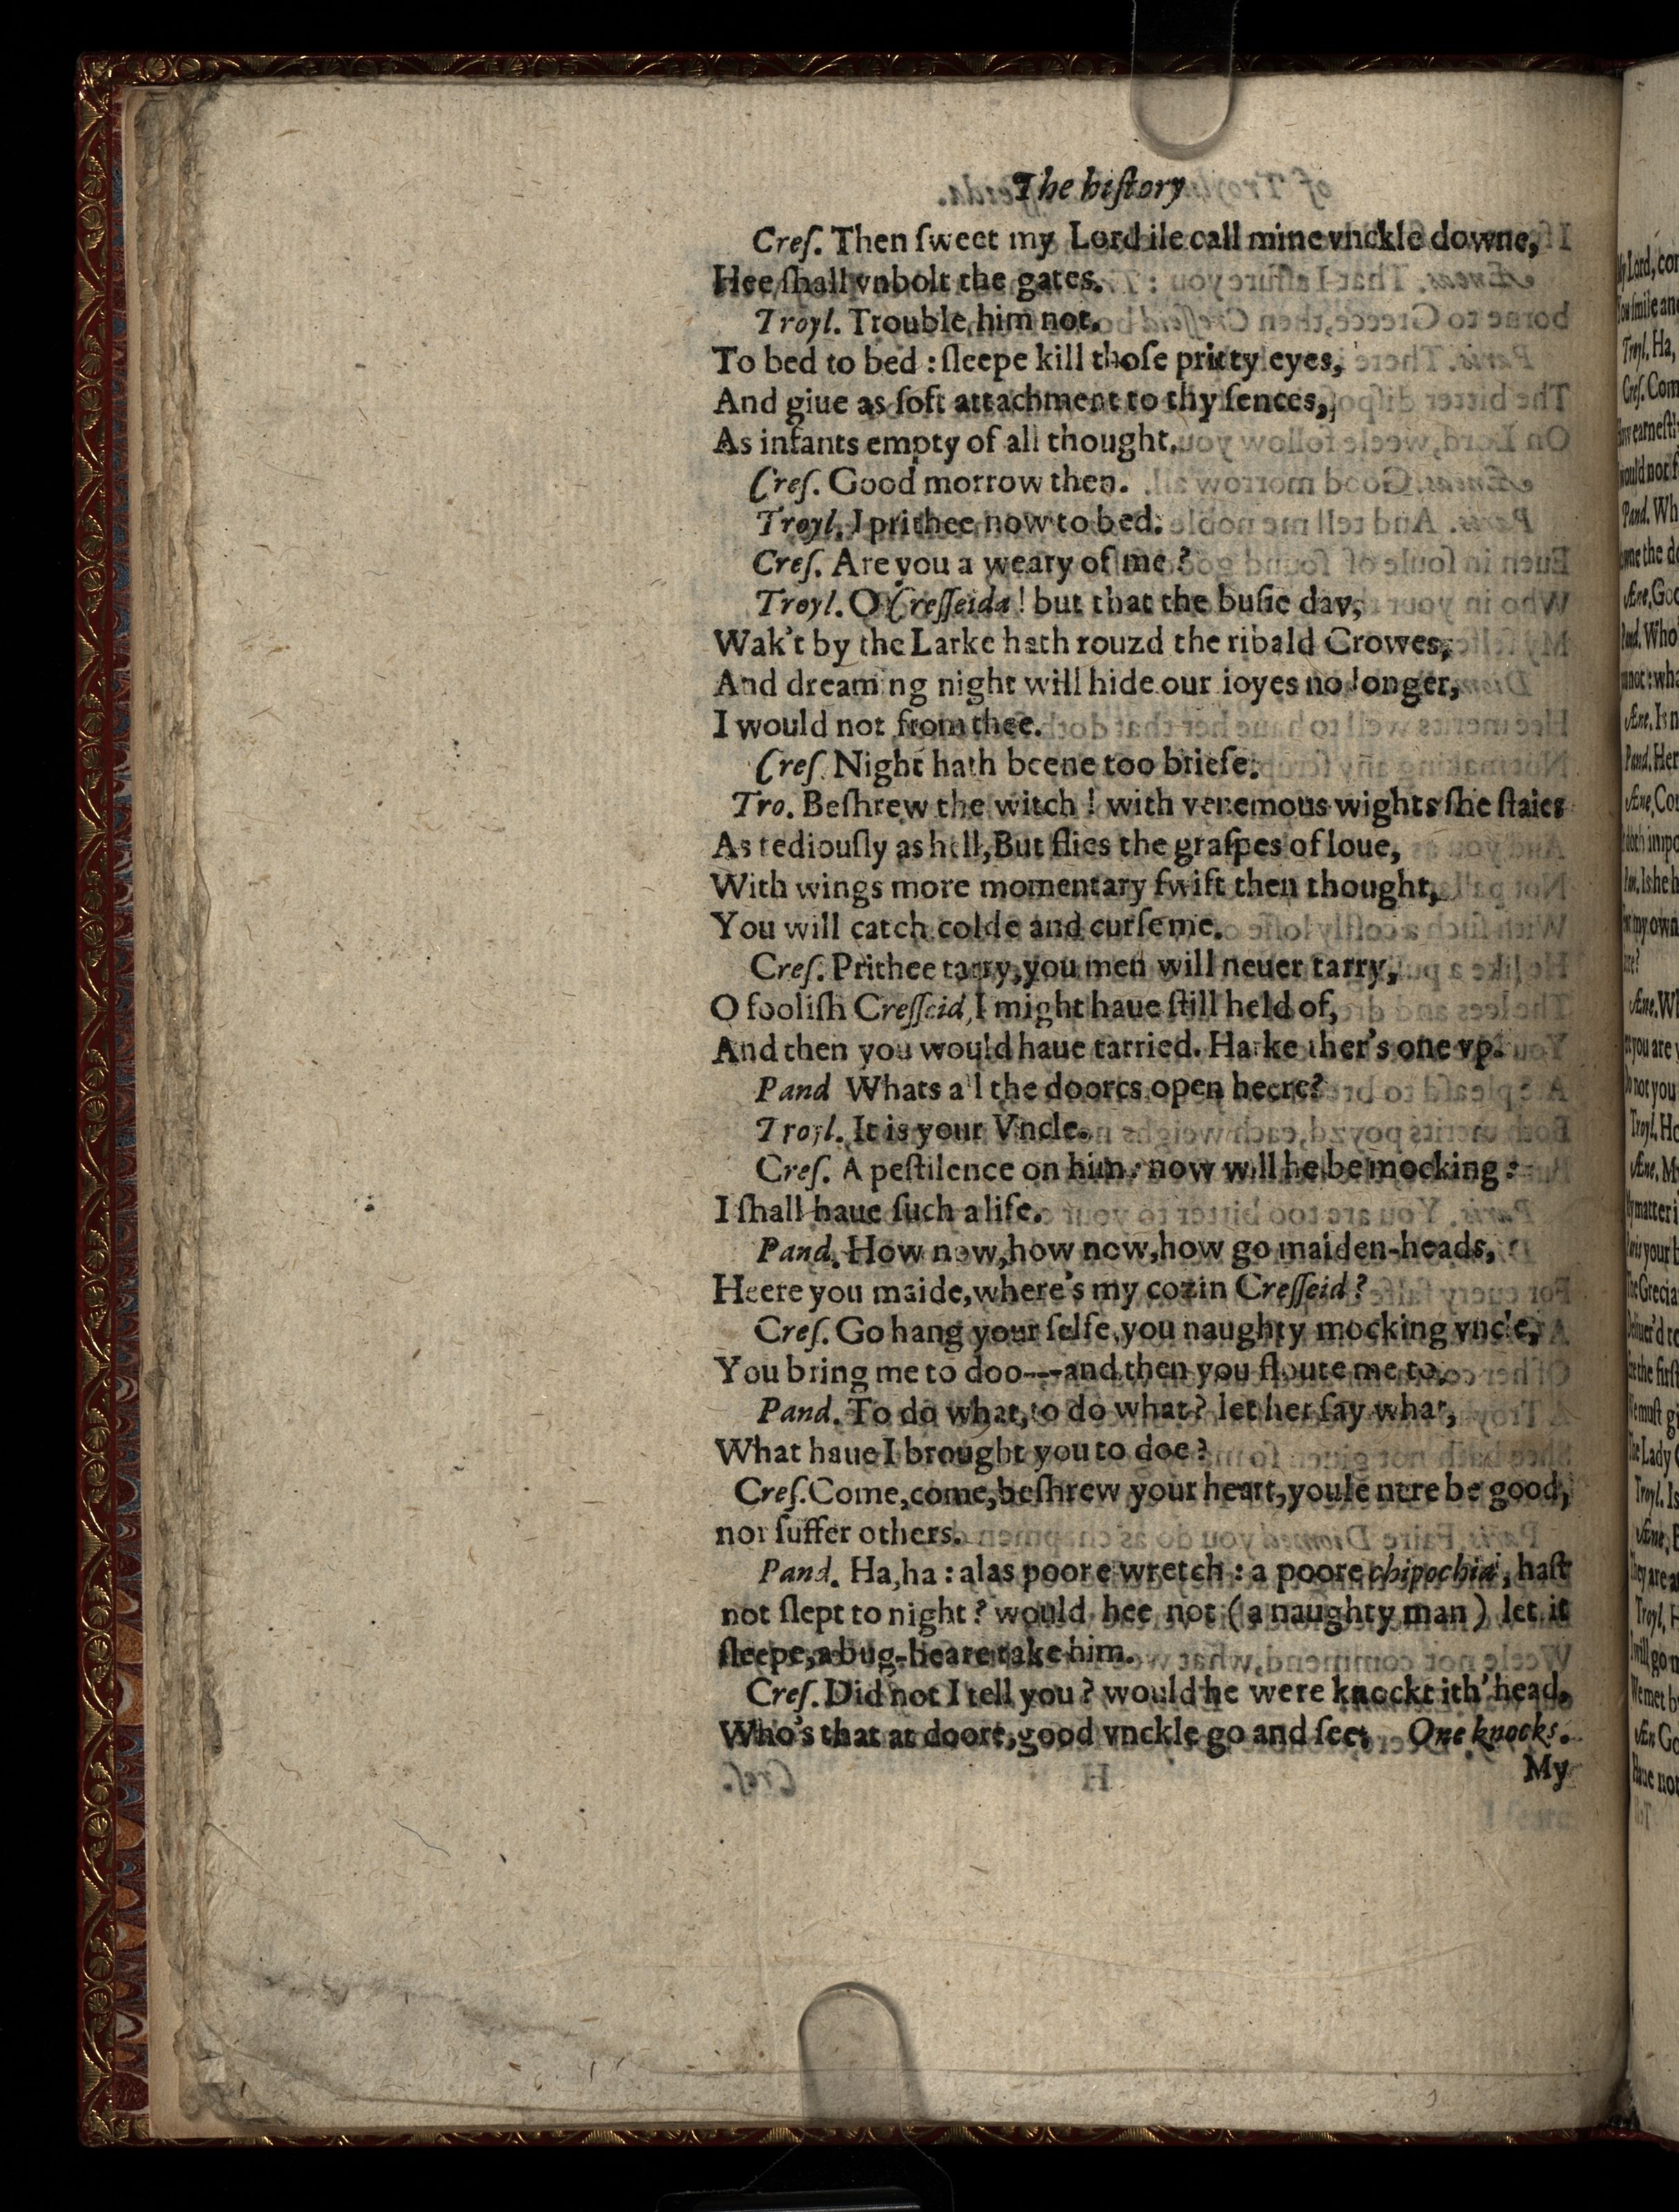 The hiſtory
Creſ. Then ſweet my Lord ile call mine vnckle downe,
Hee ſhall vnbolt the gates.
Troyl. Trouble him not.
To bed to bed : ſleepe kill thoſe pritty eyes,
And giue as ſoft attachment to thy ſences,
As infants empty of all thought.
Creſ. Good morrow then.
Troyl. I prithee now to bed.
Creſ. Are you a weary of me ?
Troyl. O Creſſeida ! but that the buſie day,
Wak't by the Larke hath rouzd the ribald Crowes,
And dreaming night will hide our ioyes no longer,
I would not from thee.
Creſ. Night hath beene too briefe.
Tro. Beſhrew the witch ! with venemous wights ſhe ſtaies
As tediouſly as hell, But flies the graſpes of loue,
With wings more momentary ſwift then thought,
You will catch colde and curſe me.
Creſ. Prithee tarry, you men will neuer tarry,
O fooliſh Creſſeid, I might haue ſtill held of,
And then you would haue tarried. Harke ther's one vp.
Pand Whats all the doores open heere?
Troyl. It is your Vncle.
Creſ. A peſtilence on him: now will he be mocking :
I ſhall haue ſuch a life.
Pand. How now, how now, how go maiden-heads,
Heere you maide, where's my cozin Creſſeid ?
Creſ. Go hang your ſelfe, you naughty mocking vncle,
You bring me to doo---and then you floute me to.
Pand. To do what, to do what ? let her ſay what,
What haue I brought you to doe ?
Creſ. Come, come, beſhrew your heart, youle nere be good,
nor ſuffer others.
Pand. Ha, ha : alas poore wretch : a poore chipochia, haſt
not ſlept to night ? would hee not ( a naughty man ) let it
ſleepe, a bug-beare take him.
Creſ. Did not I tell you ? would he were knockt ith' head,
Who's that at doore, good vnckle go and ſee, One knocks.
My